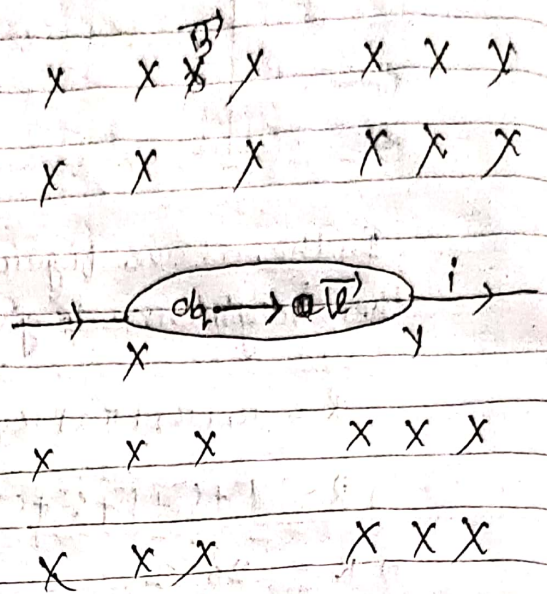 B
X X X X X X X
X X X X X X
i
dq v
X y
X X X X X X
X X X X X X